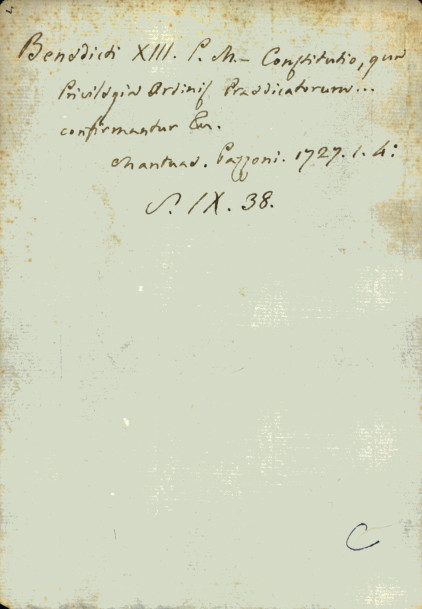 Benedicti XIII. P. M. Constitutio, qua
Privilegia Ordinis Praedicatorum...
confirmantur &c.
Mantuae. Pazzoni. 1727. 1. 4:
S. IX. 38.
C